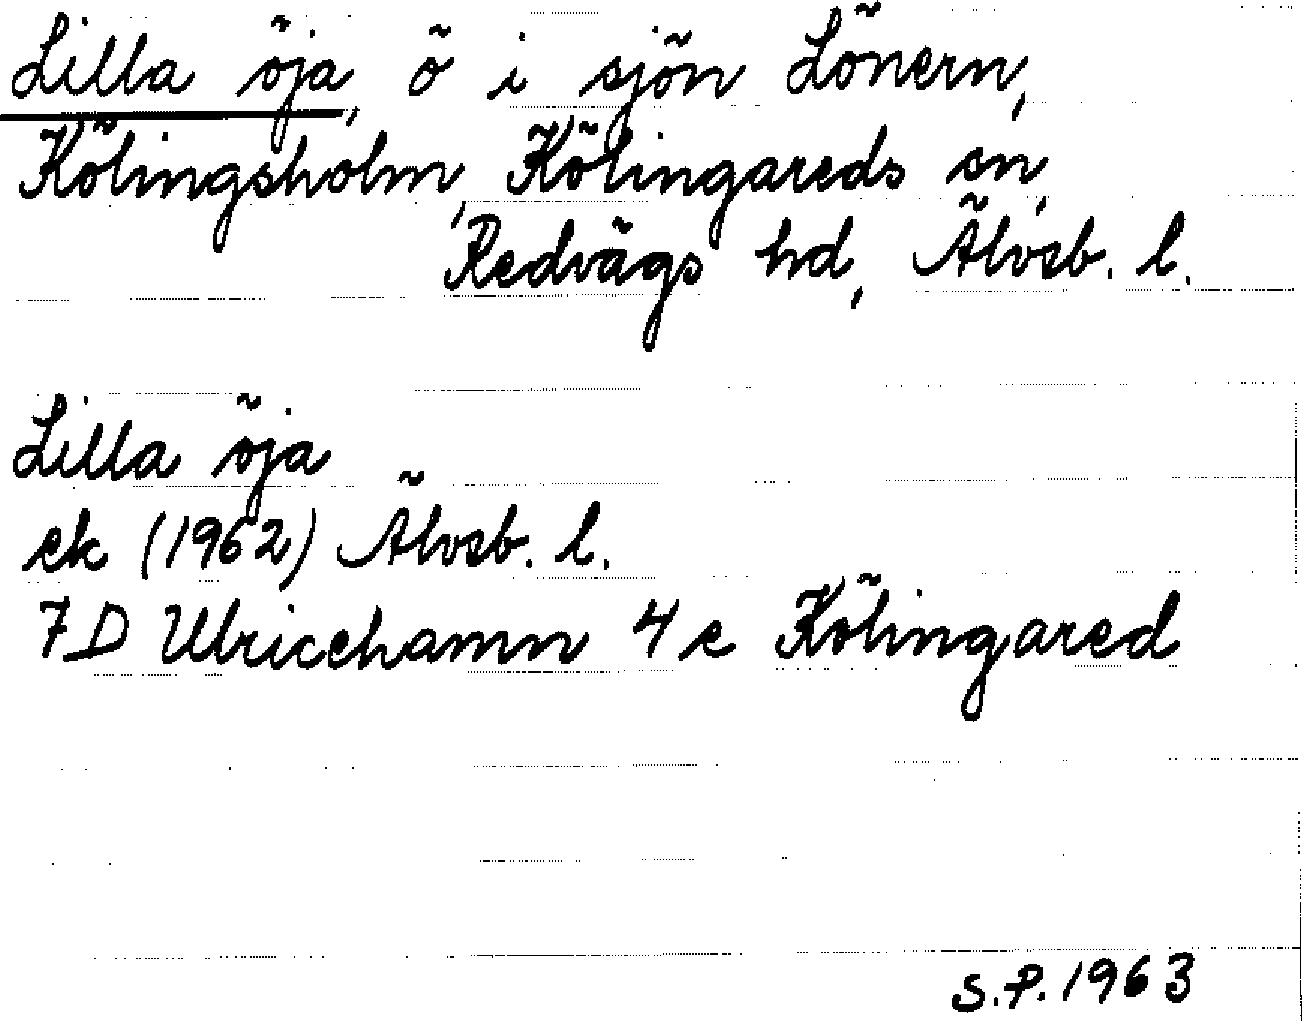 Lilla öja, ö i sjön Lönern,
Kölingsholm, Kölingareds sn,
Redvägs hd, Älvsb. l.
Lilla öja
ek (1962) Älvsb. l.
7D Ulricehamn 4 e Kölingared
S.P. 1963